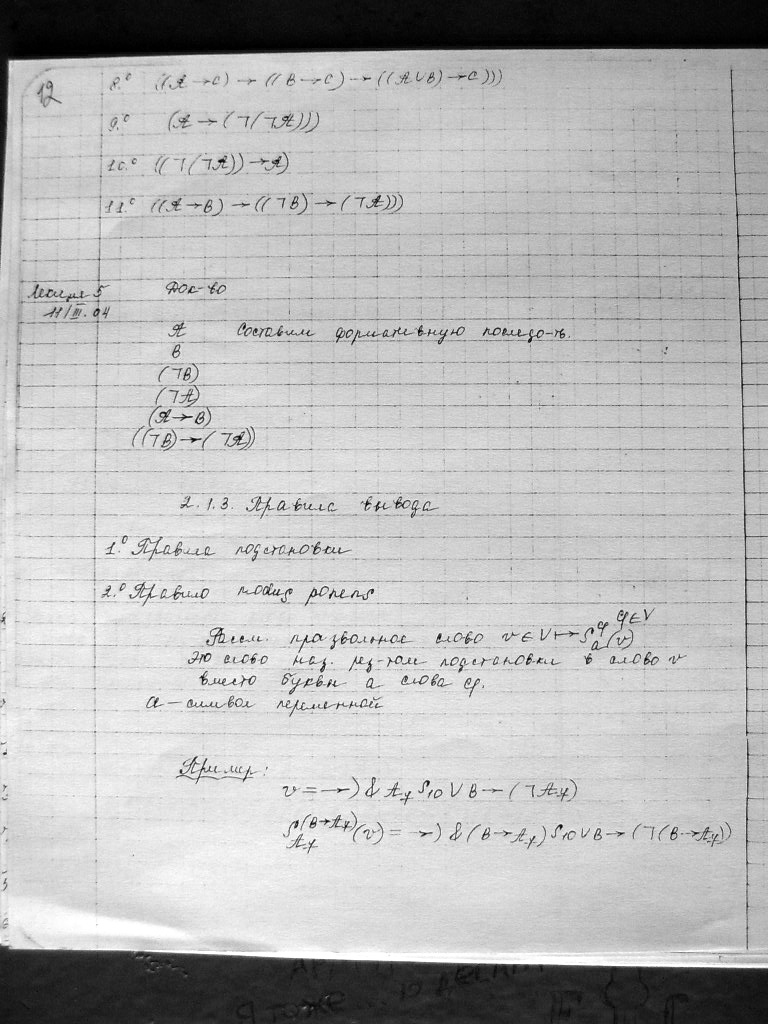 12
8.° ((A→C)→((B→C)→((A∪B)→C)))
9.° (A→(¬(¬A)))
10.° ((¬(¬A))→A)
11.° ((A→B)→((¬B)→(¬A)))
Лекция 5
11/III.04
Док-во
A Составим формативную последо-ть.
B
(¬B)
(¬A)
(A→B)
((¬B)→(¬A))
2.1.3. Правила вывода
1.° Правила подстановки
2.° Правило modus ponens
Рассм. произвольное слово v∈V ↦ S_a^φ(v) φ∈V
Это слово наз. рез-том подстановки в слово v
вместо буквы a слова φ.
a – символ переменной
Пример:
v = →)&A₇S₁₀∨B→(¬A₇)
S_{A₇}^{(B→A₇)}(v) = →)&(B→A₇)S₁₀∨B→(¬(B→A₇))
Я ТОЖЕ...